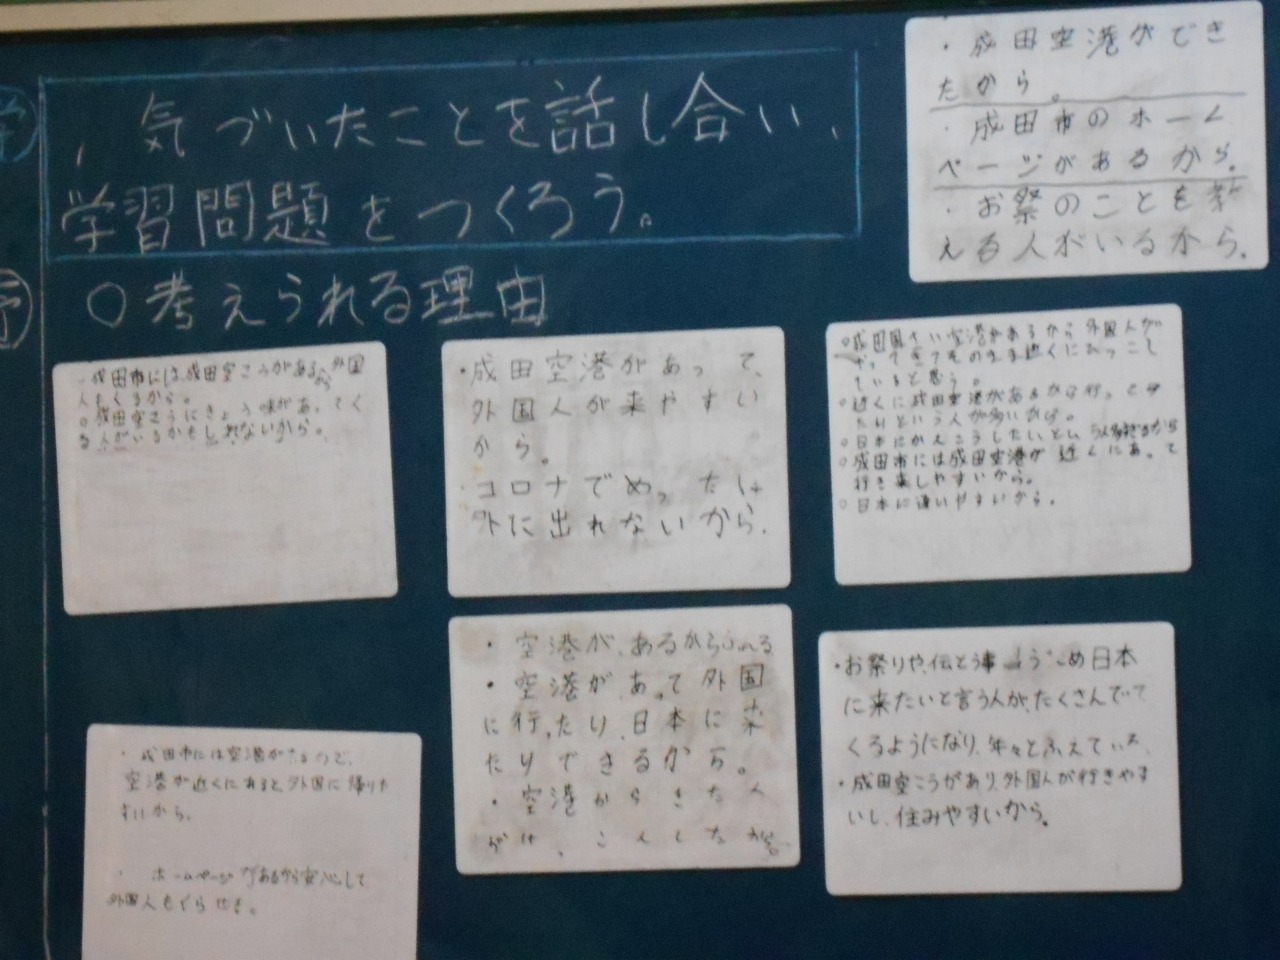 学
、気づいたことを話し合い、
学習問題をつくろう。
予
○考えられる理由
・成田空港ができ
たから。
・成田市のホーム
ページがあるから。
・お祭のことを
える人がいるから。
・成田市には成田空こうがあるから外国
人もくるから。
○成田空こうにきょう味があってく
る人がいるかもしれないから。
・成田空港があって、
外国人が来やすい
から。
・コロナでめったに
外に出れないから。
○成田国さい空港があるから外国人が
やってきてそのまま近くにひっこし
ていると思う。
○近くに成田空港があるから行ってみ
たりという人が多いから。
○日本にかんこうしたいという
○成田市には成田空港が近くにあって
行き来しやすいから。
○日本に通いやすいから。
・空港が、あるから
・空港があって外国
に行ったり、日本に来
たりできるから。
・空港からきた人
が
・お祭りや、伝とう 日本
に来たいと言う人が、たくさんでて
くるようになり、年々とふえている。
・成田空こうがあり、外国人が行きやす
いし、住みやすいから。
・成田市には空港があるので、
空港が近くにあると、外国に帰りや
すいから。
・ホームページがあるから安心して
外国人もくらせる。